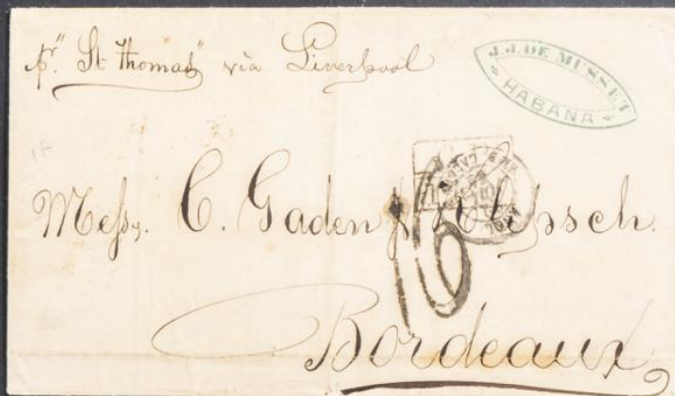 pr "St Thomas" via Liverpool
J.J. DE MUSSET
HABANA
1A
Messrs. C. Gaden & Klipsch.
16
Bordeaux